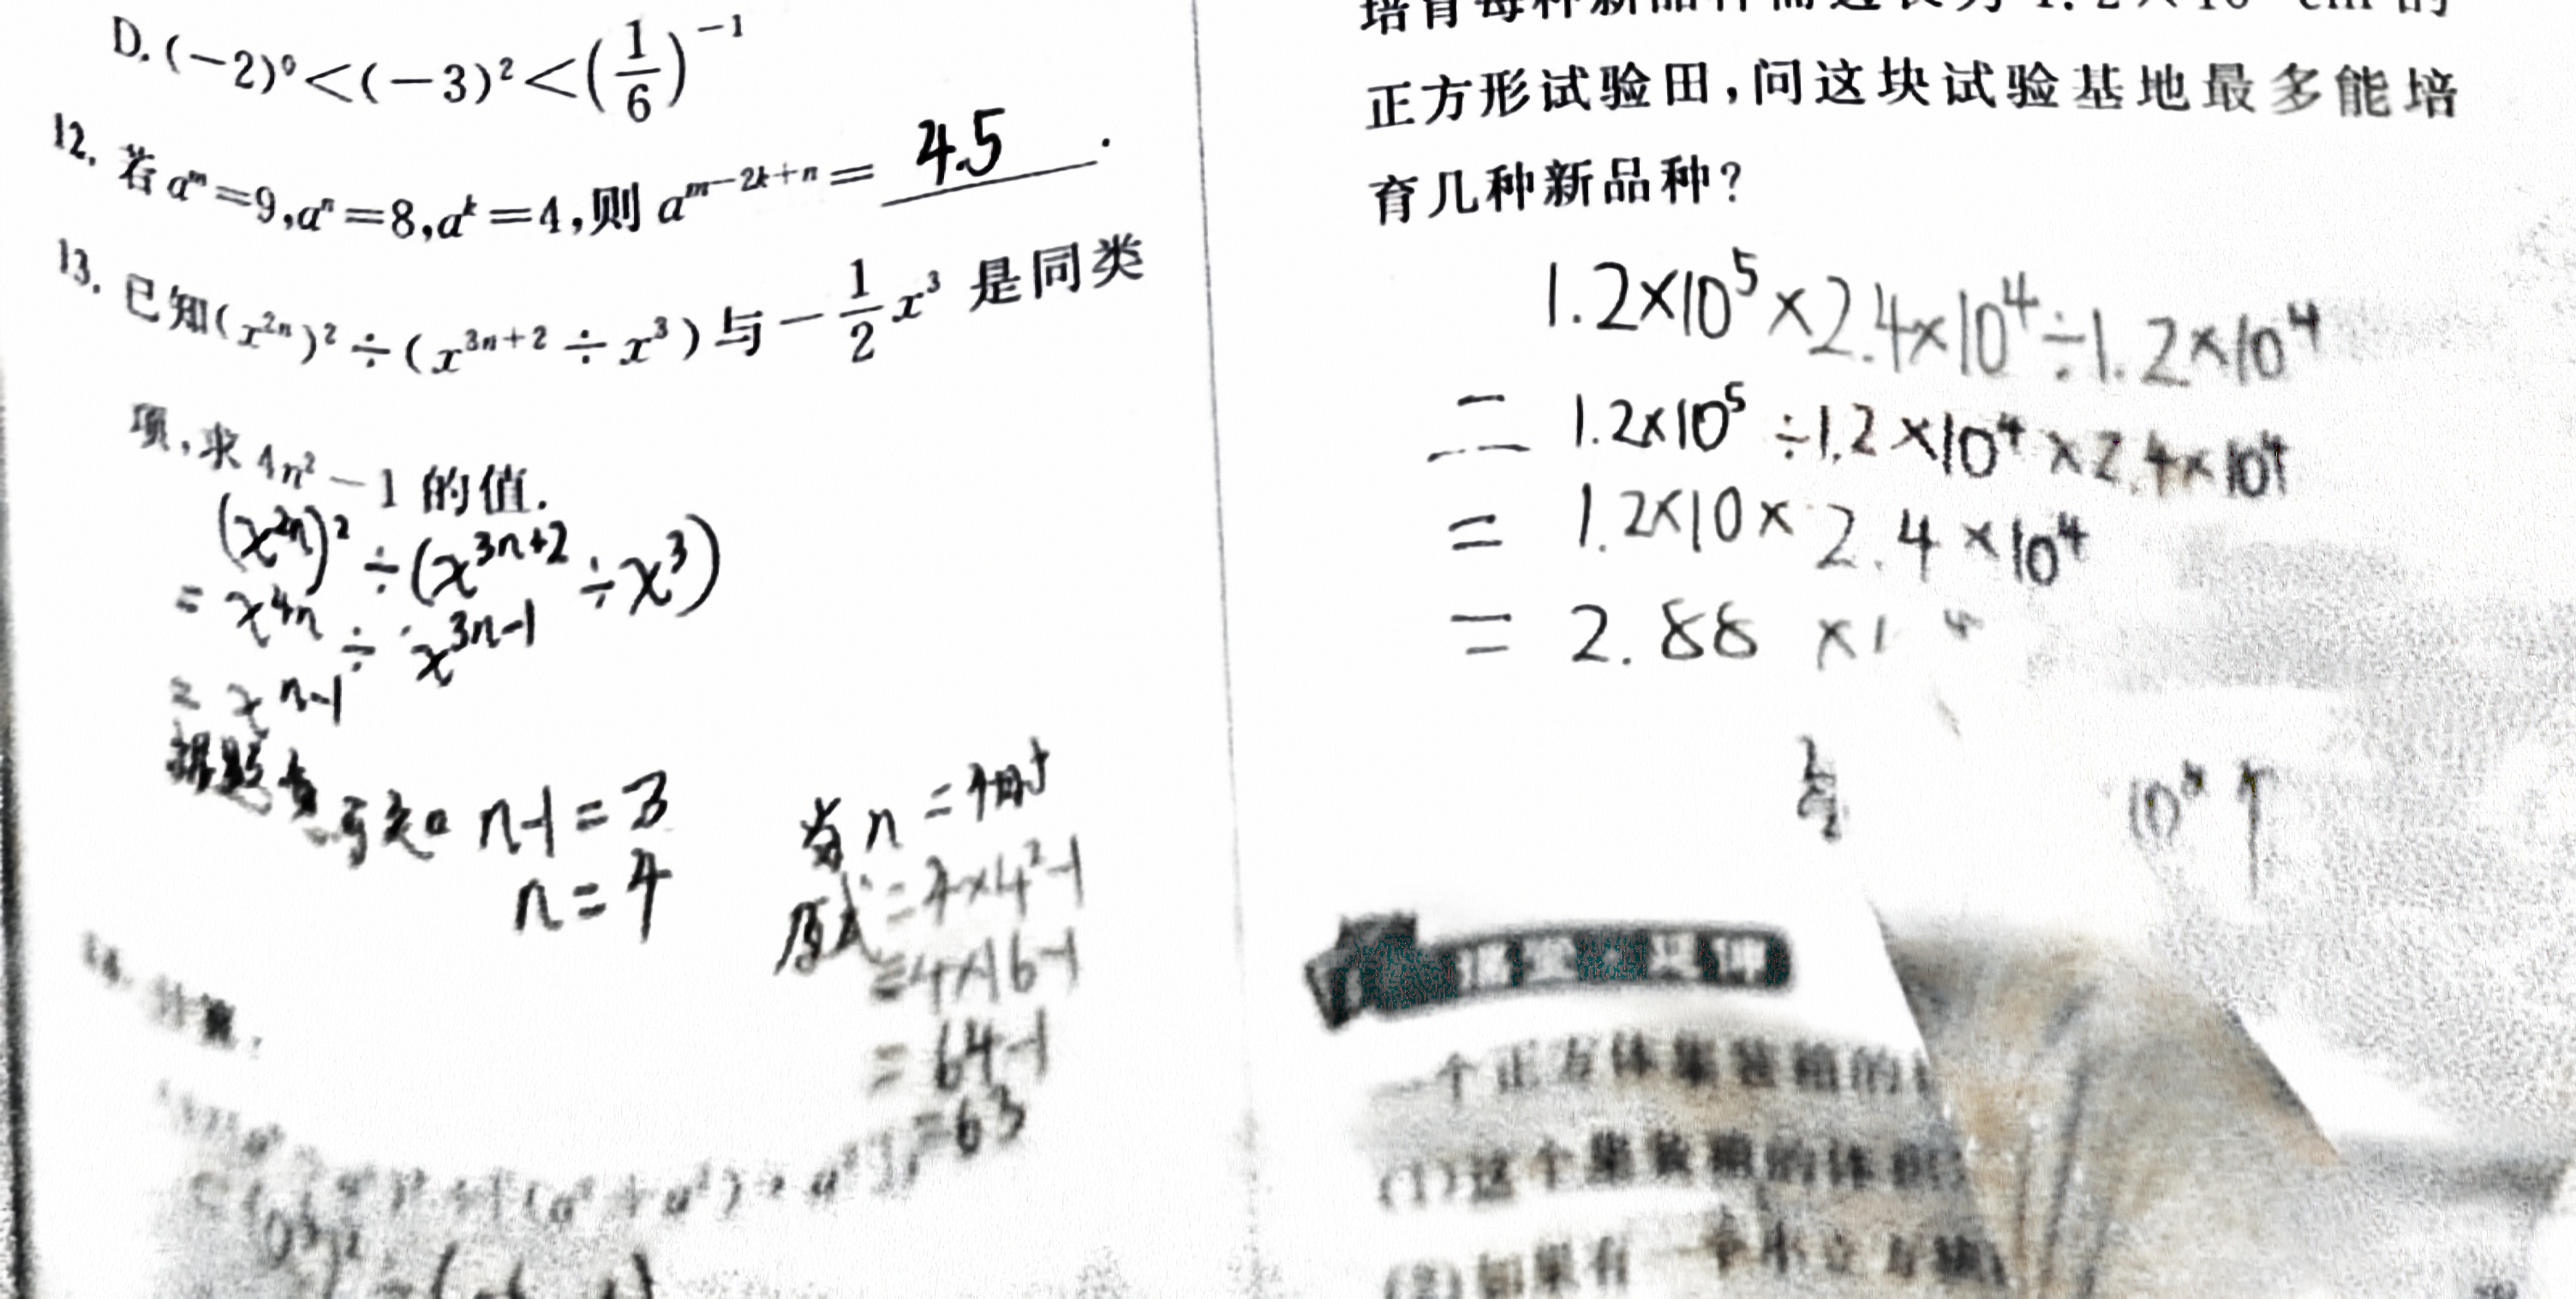 D. (-2)⁰<(-3)²<(1/6)⁻¹
12. 若 aᵐ=9,aⁿ=8,aᵏ=4,则 aᵐ⁻²ᵏ⁺ⁿ= 4.5 .
13. 已知(x²ⁿ)²÷(x³ⁿ⁺²÷x³)与-1/2x³ 是同类
项,求 4n²-1 的值.
(x²ⁿ)²÷(x³ⁿ⁺²÷x³)
=x⁴ⁿ÷x³ⁿ⁻¹
=xⁿ⁻¹
n-1=3
n=4
当n=4时
原式=4×4²-1
=4×16-1
=64-1
=63
14. 计算:
正方形试验田,问这块试验基地最多能培
育几种新品种?
1.2×10⁵×2.4×10⁴÷1.2×10⁴
= 1.2×10⁵÷1.2×10⁴×2.4×10⁴
= 1.2×10×2.4×10⁴
= 2.88 ×1
一个正方体集装箱的
(1)这个集装箱的体积
(2)如果有一个小立方